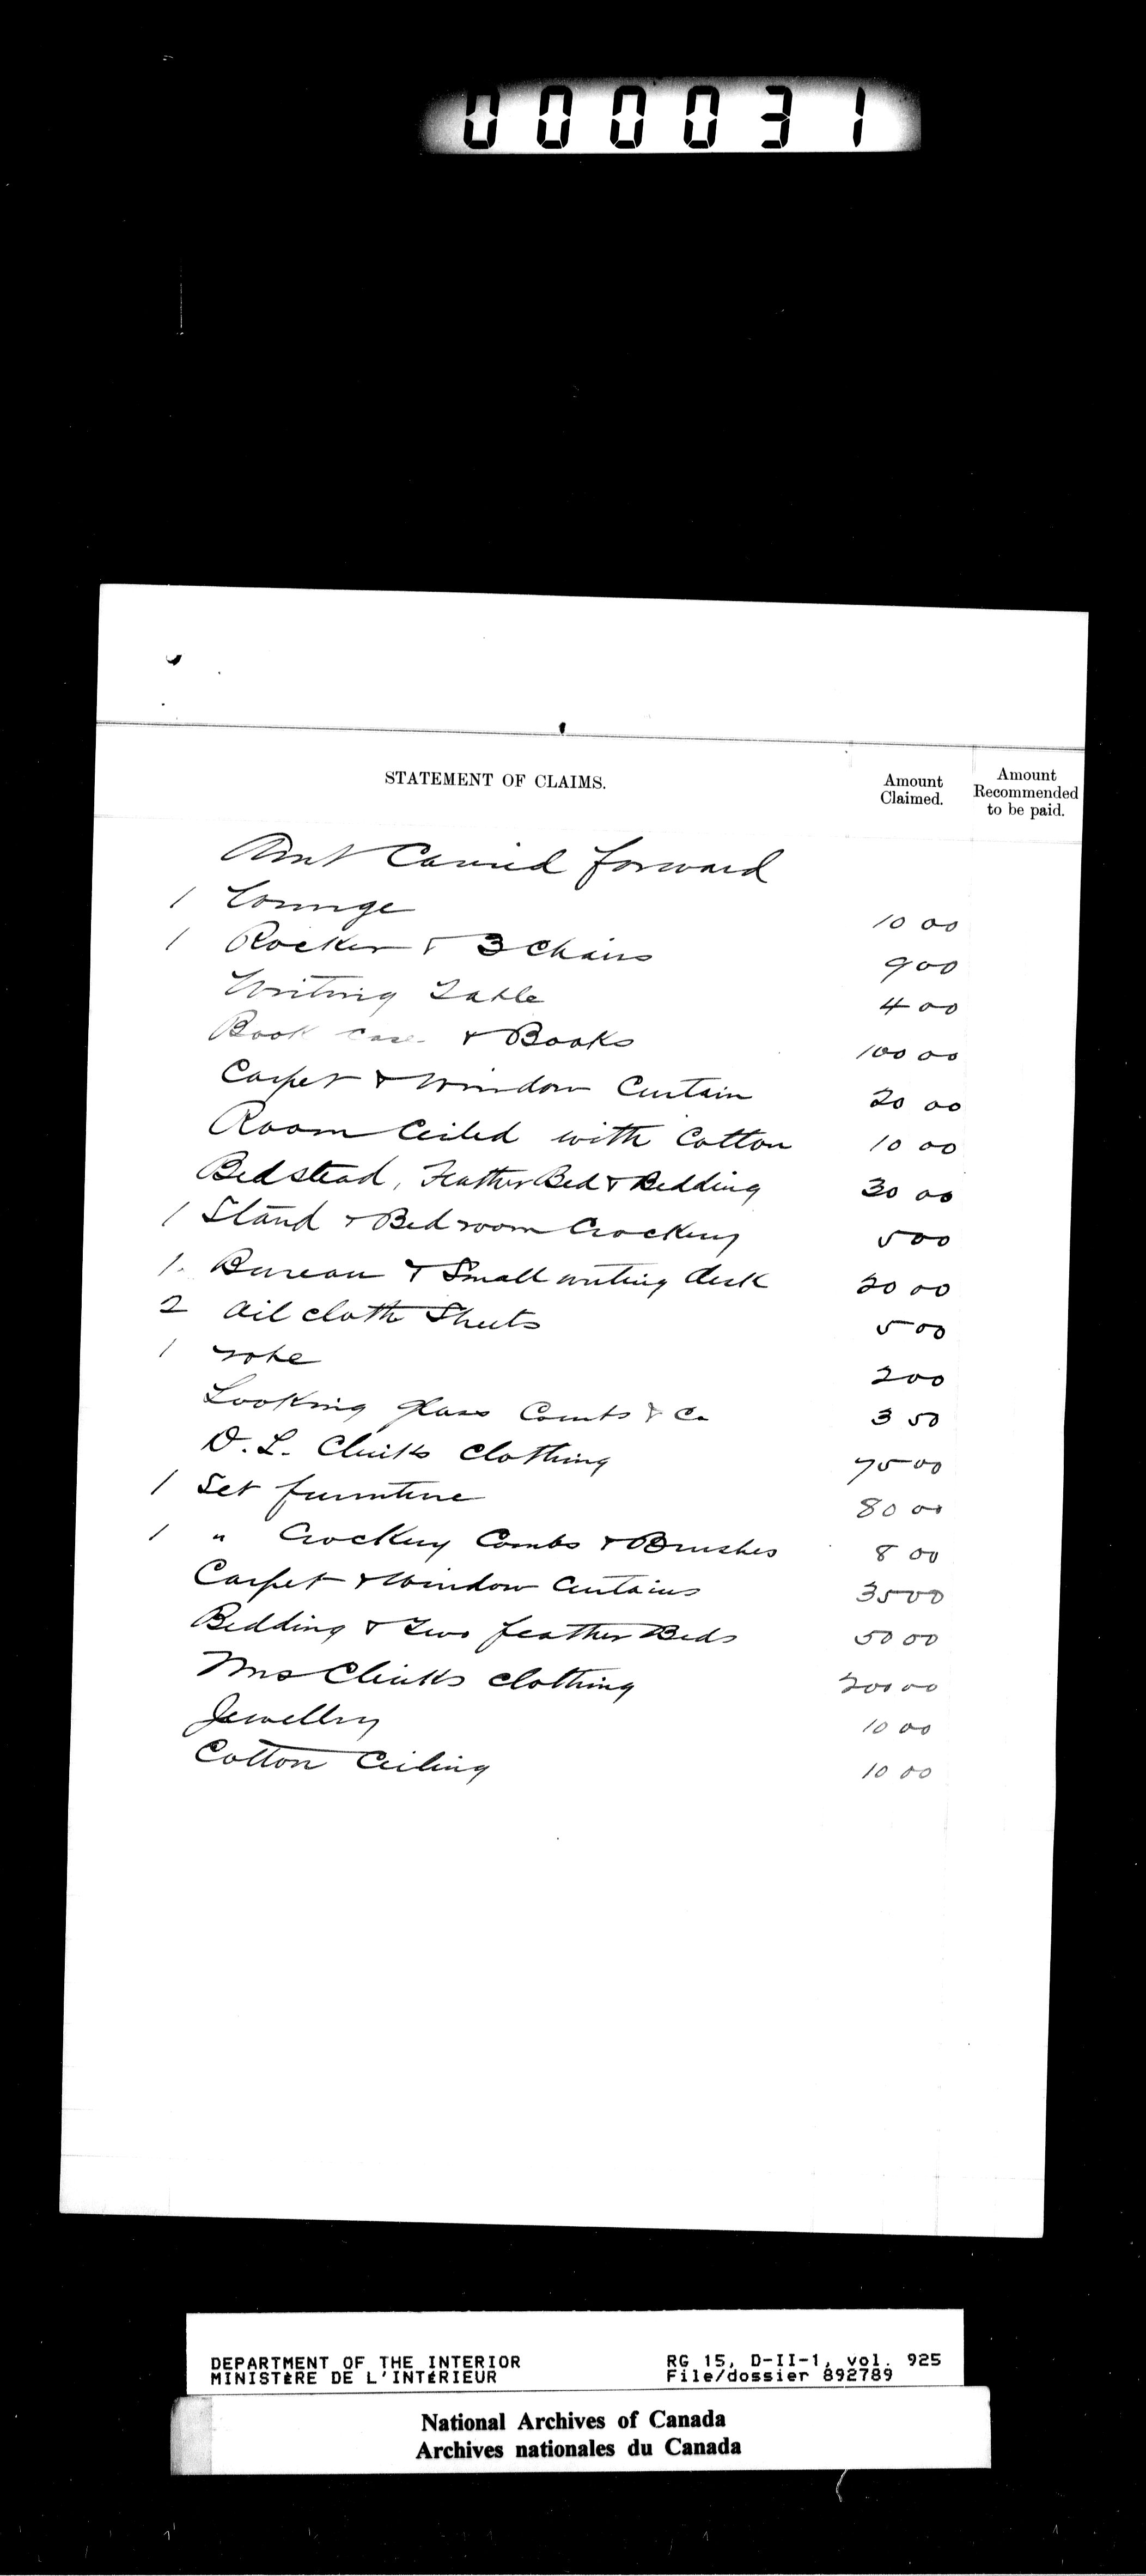 000031
STATEMENT OF CLAIMS.
Amount Claimed.
Amount Recommended to be paid.
Amt Carried forward
1 Lounge 10 00
1 Rocker & 3 Chairs 9 00
Writing Table 4 00
Book case & Books 100 00
Carpet & Window Curtain 20 00
Room Ceiled with Cotton 10 00
Bedstead, Feather Bed & Bedding 30 00
1 Stand & Bedroom Crockery 5 00
1 Bureau & Small writing desk 20 00
2 Oil cloth Sheets 5 00
1 robe 2 00
Looking glass Combs & Co 3 50
D. L. Clinks Clothing 75 00
1 Set furniture 80 00
1 " Crockery Combs & Brushes 8 00
Carpet & Window Curtains 35 00
Bedding & Two feather Beds 50 00
Mrs Clinks clothing 200 00
Jewellry 10 00
Cotton Ceiling 10 00
DEPARTMENT OF THE INTERIOR
MINISTÈRE DE L'INTÉRIEUR
RG 15, D-II-1, vol. 925
File/dossier 892789
National Archives of Canada
Archives nationales du Canada